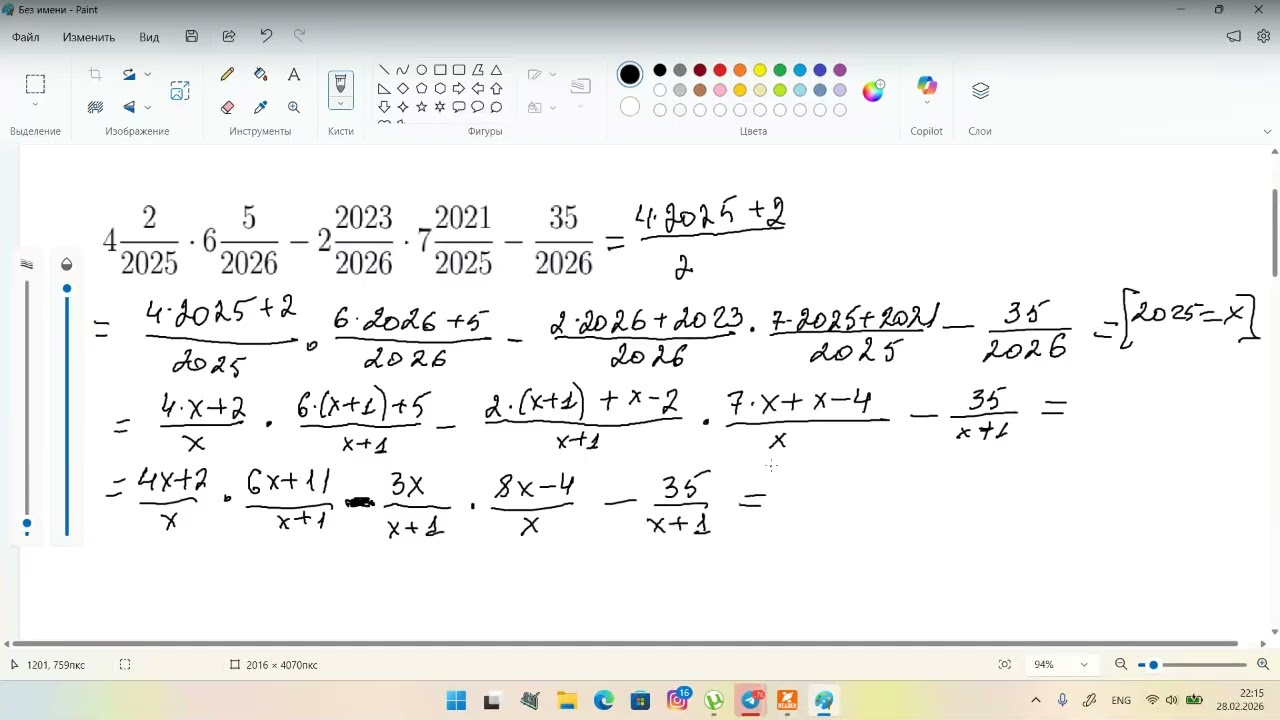 Без имени - Paint
Файл Изменить Вид
Выделение Изображение Инструменты Кисти Фигуры Цвета Copilot Слои
4 2/2025 · 6 5/2026 − 2 2023/2026 · 7 2021/2025 − 35/2026 = 4·2025+2/2
= 4·2025+2/2025 · 6·2026+5/2026 − 2·2026+2023/2026 · 7·2025+2021/2025 − 35/2026 = [2025=x]
= 4·x+2/x · 6·(x+1)+5/x+1 − 2·(x+1)+x−2/x+1 · 7·x+x−4/x − 35/x+1 =
= 4x+2/x · 6x+11/x+1 − 3x/x+1 · 8x−4/x − 35/x+1 =
1201, 759пкс 2016 × 4070пкс 94%
16 ENG 22:15
28.02.2026